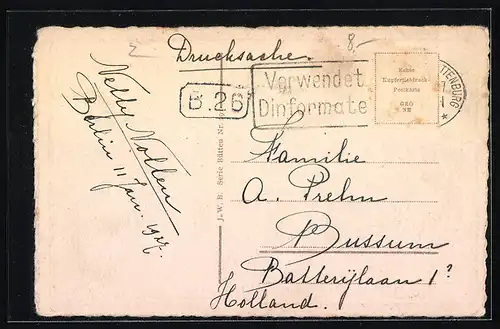 Z
8.-
Drucksache.
Verwendet
Dinformate
B. 26
Echte
Kupfertiefdruck-
Postkarte
TTENBURG
Nelly Nolten
Berlin 11 Jan. 1927.
J.W.B. Serie Büttes Nr.
Familie
A. Prehn
Bussum
Batterijlaan 1?
Holland.